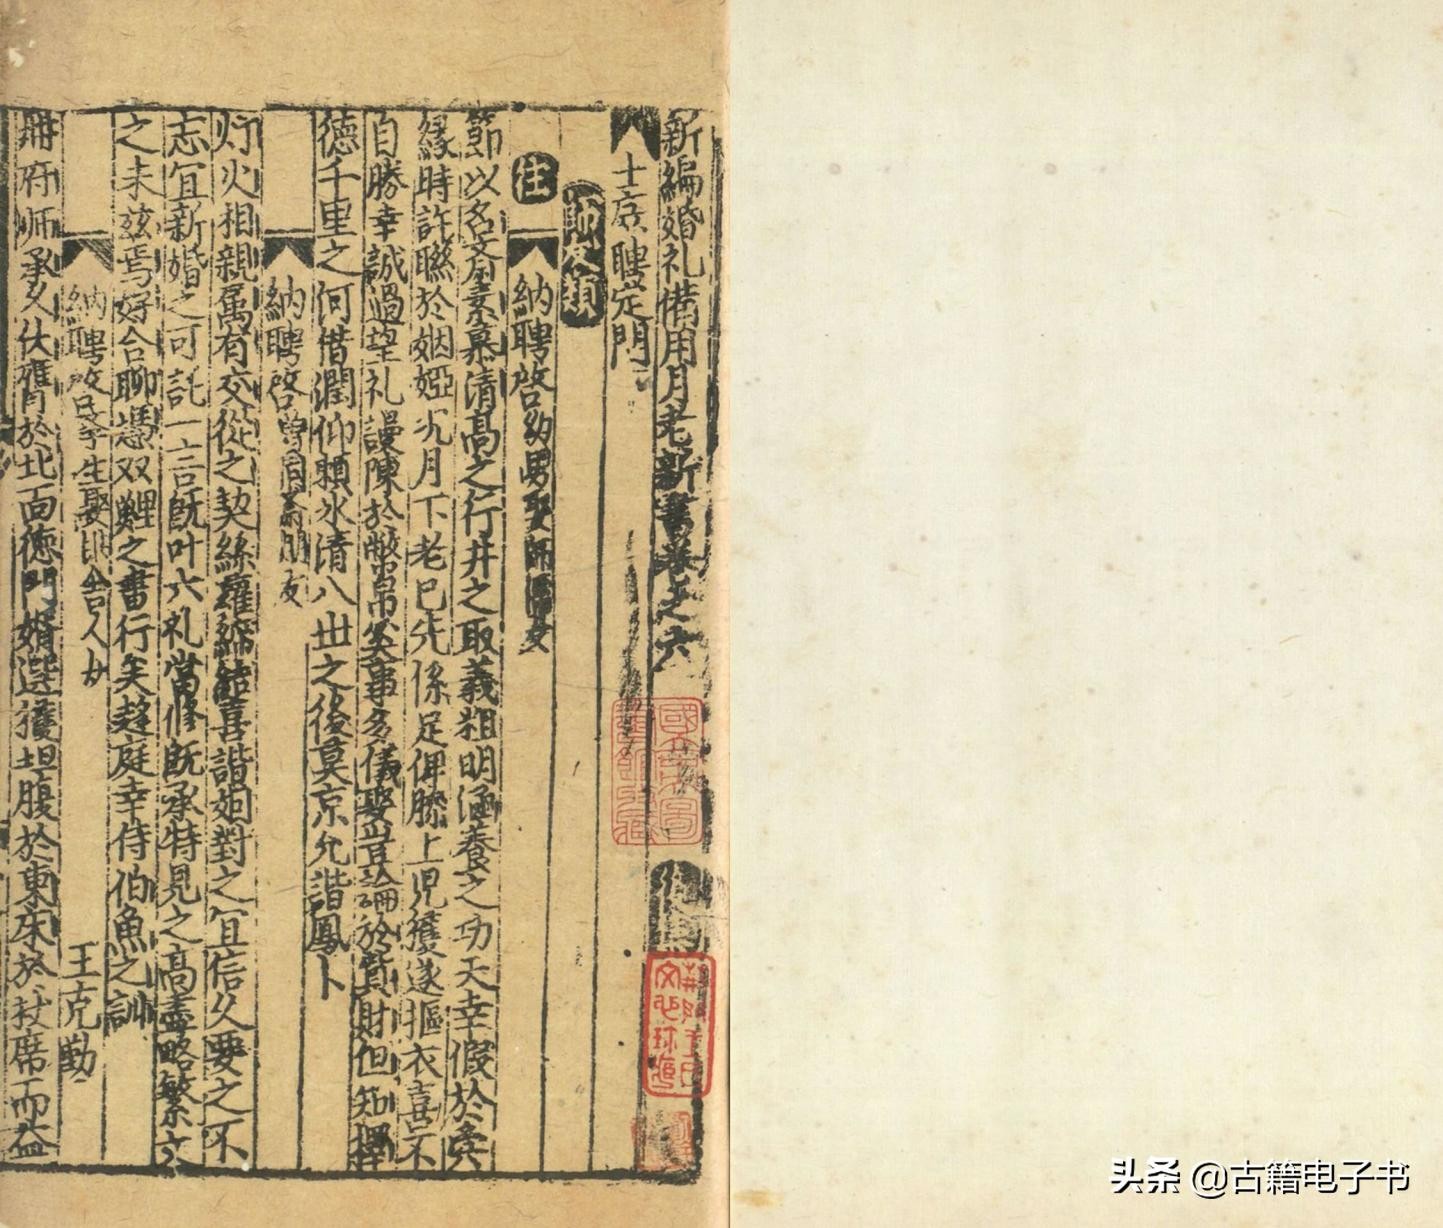 新編婚礼備用月老新書卷之六
士庶聘定門
師友類
納聘啓 幼男娶師儒女
節以名斋素慕清高之行井之取義粗明涵養之功天幸假於夤
縁時許聮於姻婭況月下老已先係足俾膝上児獲遂摳衣喜不
自勝幸誠過望礼謾陳於幣帛筊事多儀娶豈論於貲財但知擇
徳千里之何借潤仰頼氷清八丗之後莫京允諧鳳卜
納聘啓 朋友
灯火相親厲有交從之契絲蘿締結喜諧姻對之宜信久要之不
志宜新婚之可託一言既叶六礼當修既承特見之高盡略繁文
之末兹焉好合聊憑双鯉之書行矣趍庭幸侍伯魚之訓
納聘啓 生娶 舎人女 王克勤
冊府师承久伏膺於北面徳門婿選獲坦腹於東床於杖席而益
头条 @古籍电子书